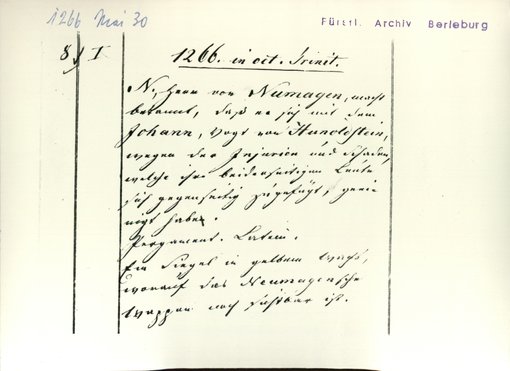 1266 Mai 30
Fürstl. Archiv Berleburg
8) I
1266. in oct. Trinit.
N, Herr von Numagen, macht
bekannt, daß er sich mit dem
Johann, Vogt von Hunoldstein,
wegen der Injurien und Schaden,
welche ihre beiderseitigen Leute
sich gegenseitig zugefügt, geei-
nigt habe.
Pergament. Latein.
Ein Siegel in gelbem Wachs,
worauf das Neumagensche
Wappen noch sichtbar ist.